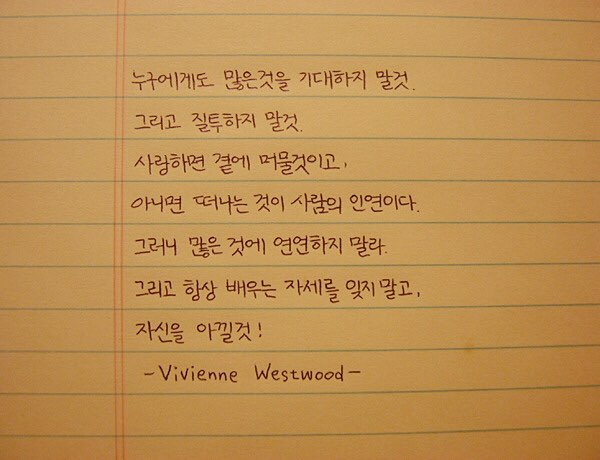 누구에게도 많은것을 기대하지 말것.
그리고 질투하지 말것.
사랑하면 곁에 머물것이고,
아니면 떠나는 것이 사람의 인연이다.
그러니 많은 것에 연연하지 말라.
그리고 항상 배우는 자세를 잊지말고,
자신을 아낄것!
-Vivienne Westwood-